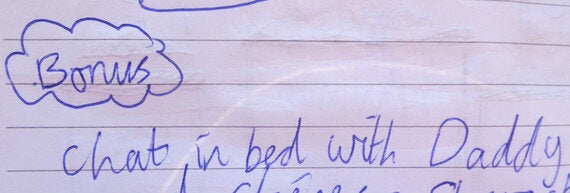 Bonus
chat in bed with Daddy